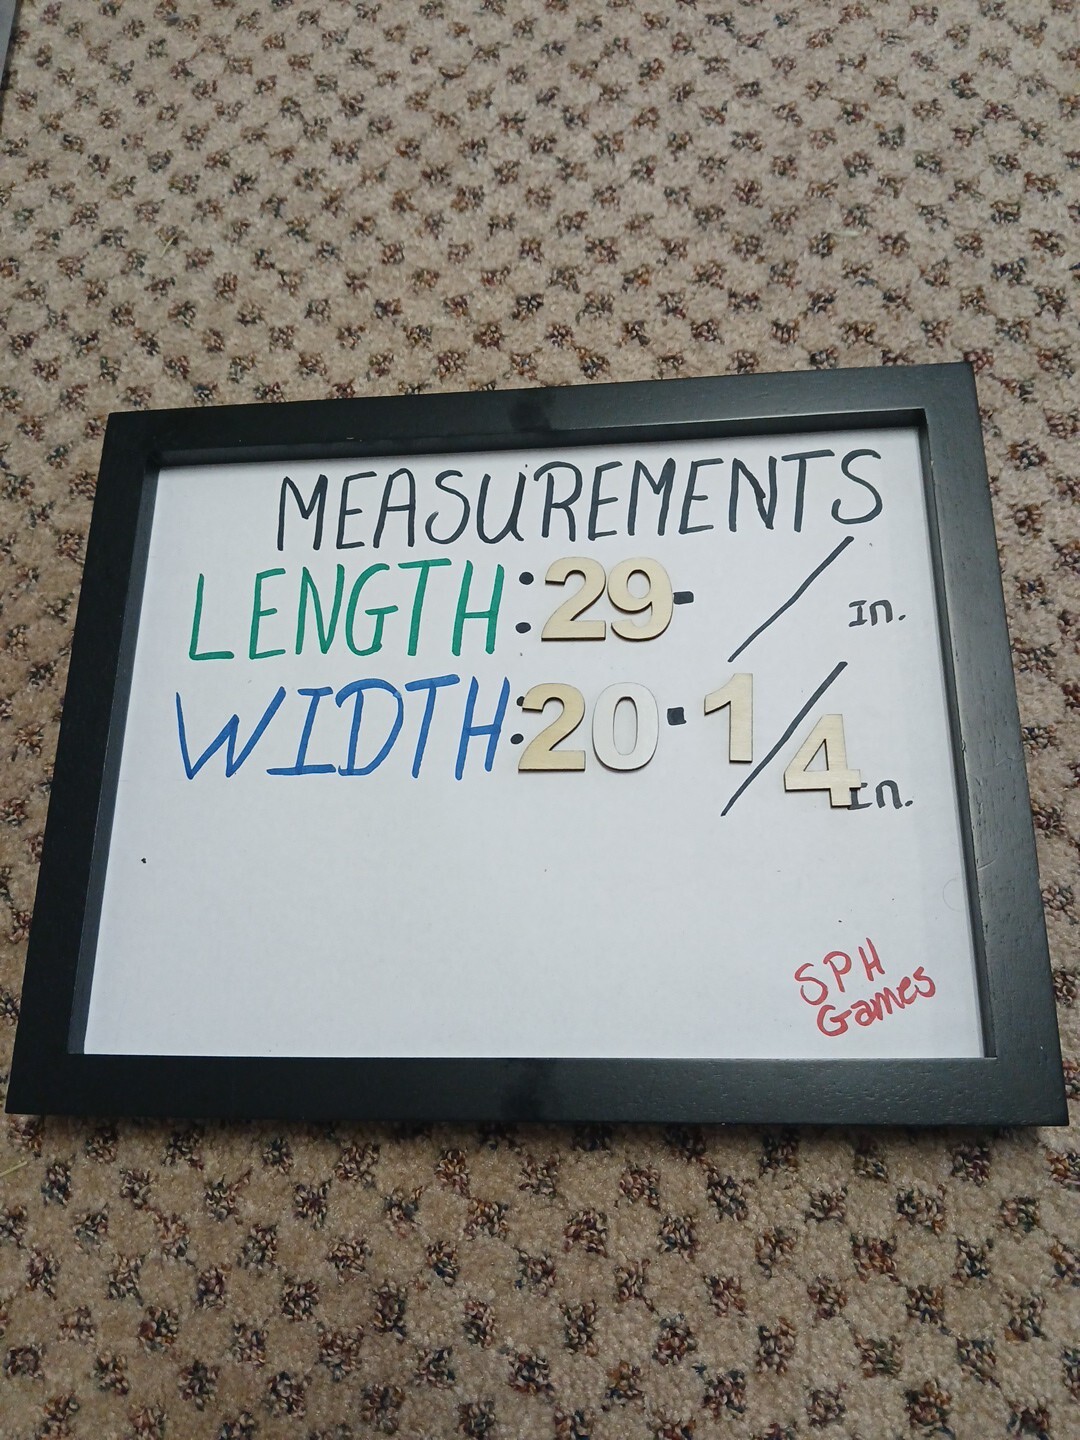 MEASUREMENTS
LENGTH: 29- / In.
WIDTH: 20-1/4 In.
SPH
Games